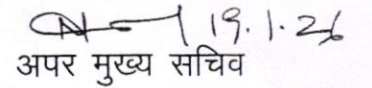 19.1.26
अपर मुख्य सचिव